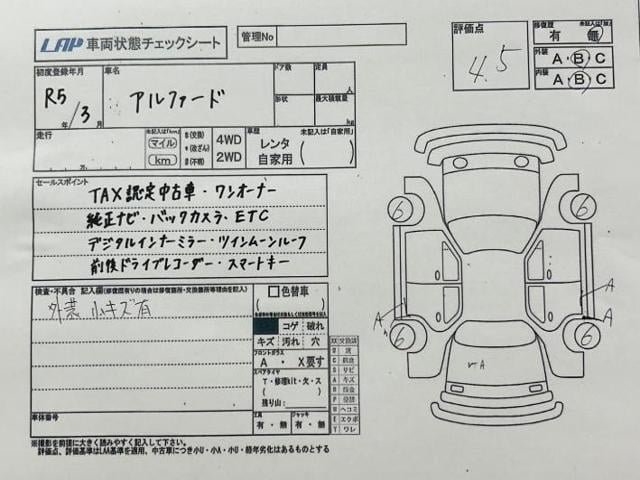 LAP 車両状態チェックシート
管理No
評価点
4.5
修復歴
未記入は「無」
有 無
外装 A・B・C
内装 A・B・C
初度登録年月
R5年/3月
車名
アルファード
ドア数
定員
人
形状
最大積載量
kg
走行
万
未記入は「km」
マイル
km
$(交換)
*(改ざん)
#(不明)
4WD
2WD
車歴 未記入は「自家用」
レンタ
自家用 ( )
セールスポイント
TAX認定中古車・ワンオーナー
純正ナビ・バックカメラ・ETC
デジタルインナーミラー・ツインムーンルーフ
前後ドライブレコーダー・スマートキー
検査・不具合 記入欄(修復歴有りの場合は修復箇所・交換箇所等理由を記入)
外装 小キズ有
色替車
コゲ 破れ
キズ 汚れ 穴
フロントガラス
A ・ X要す
スペアタイヤ
T・修理kit・欠・ス
残り山: ( )
工具
有・無
ジャッキ
有・無
車体番号
XX 交換済
S サビ
A キズ
U ヘコミ
E エクボ
T ワレ
6
6
6
6
A
A
A
A
※撮影を前提に大きく読みやすく記入して下さい。
評価点、評価基準はLAA基準を適用、中古車につき小U・小A・小U・経年劣化はあるものとする